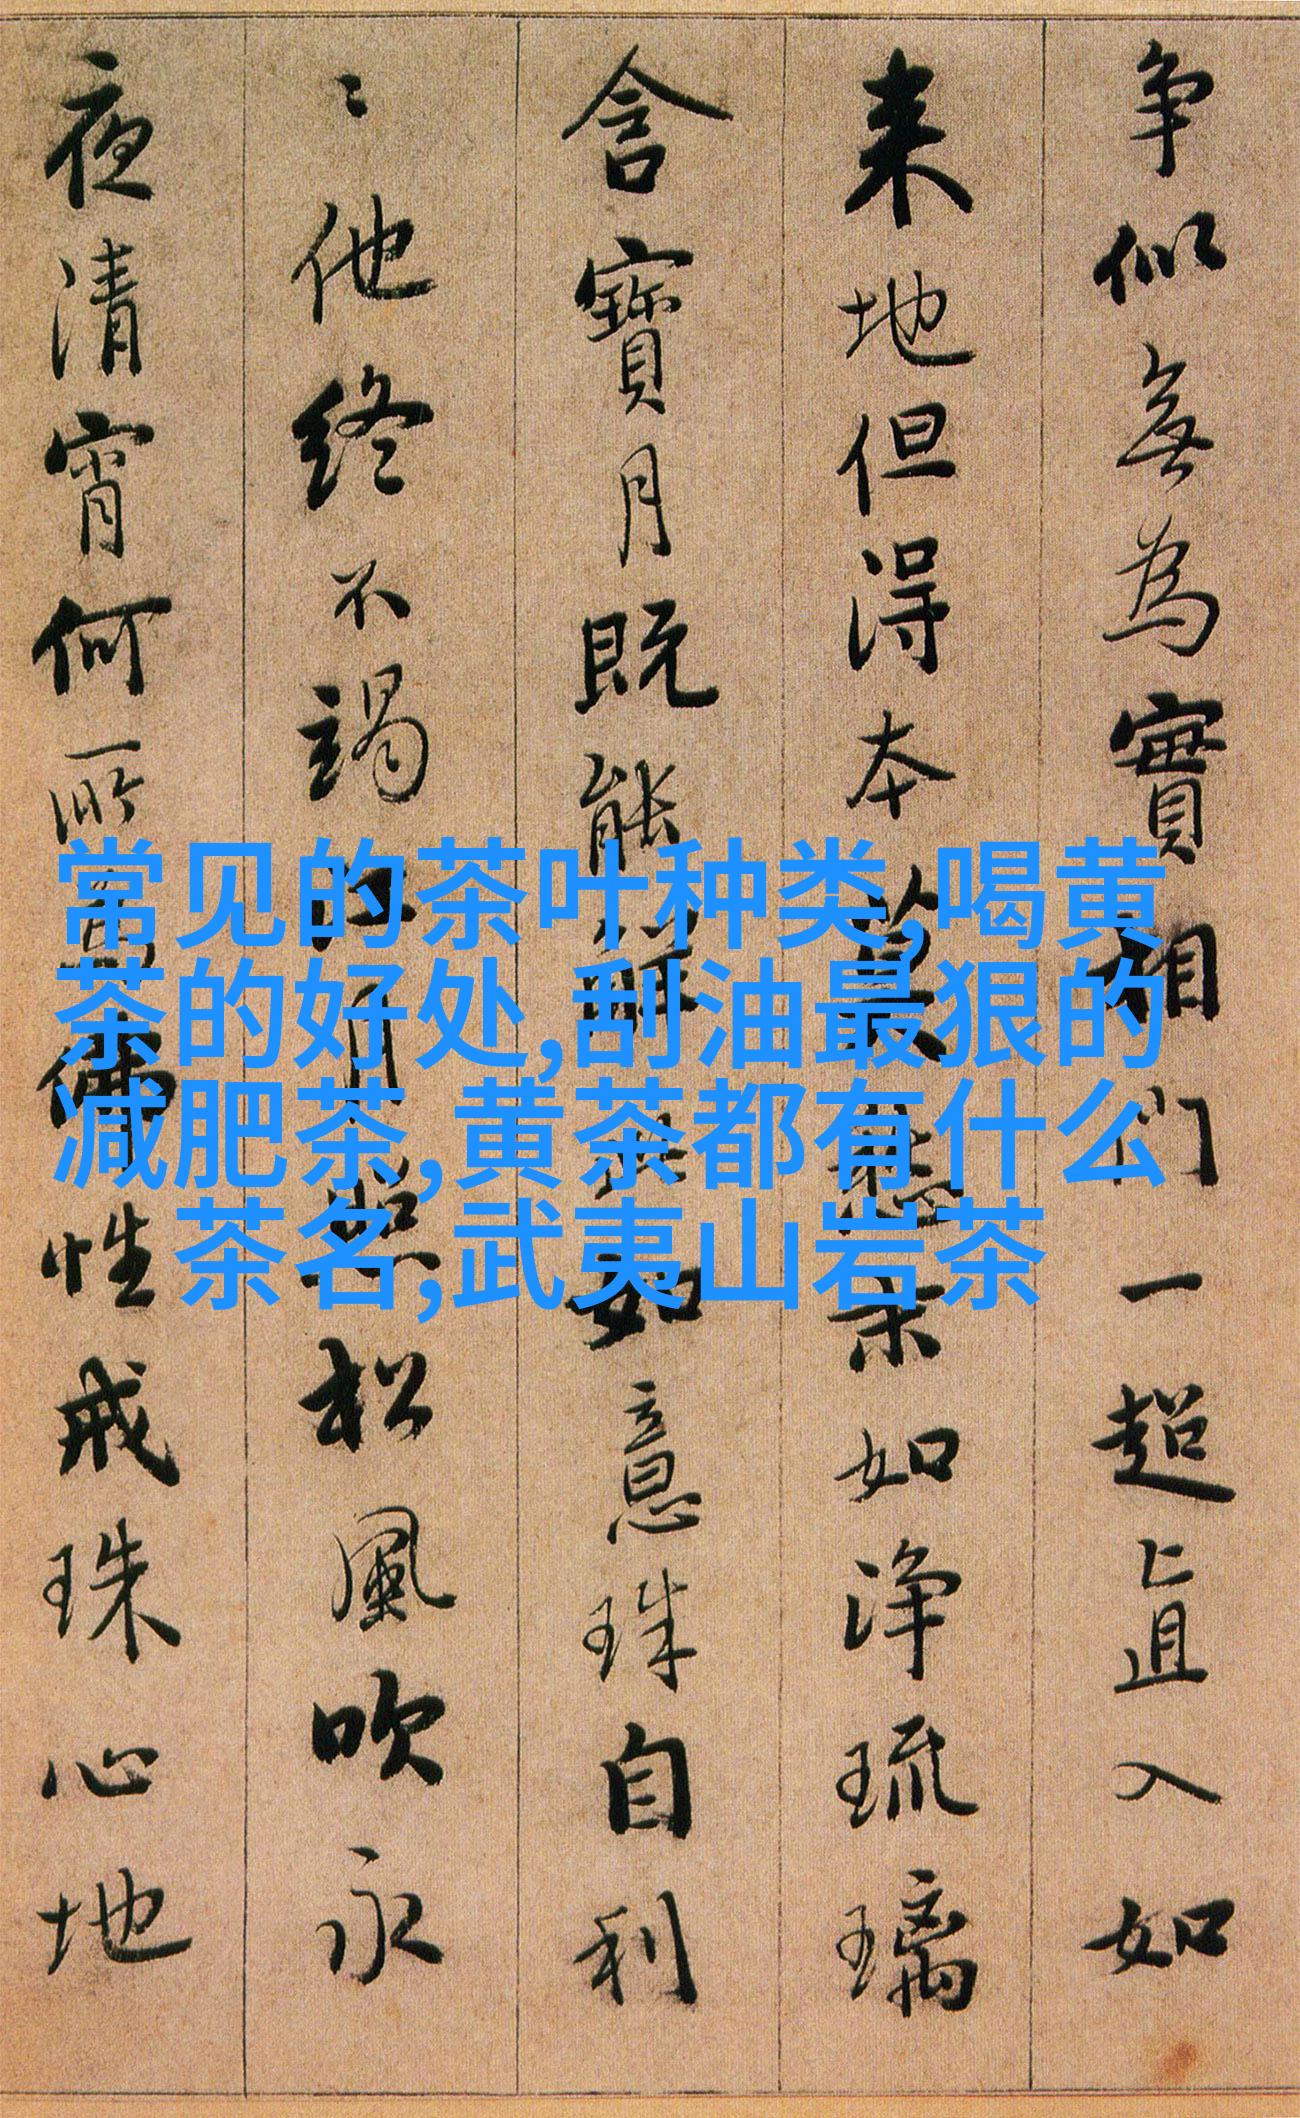 争似無為實相門一超直入如
来地但得本莫愁末如淨琉璃
含寶月既能解此如意珠自利
〻他終不竭江月照松風吹永
夜清宵何所為佛性戒珠心地
常见的茶叶种类,喝黄
茶的好处,刮油最狠的
减肥茶,黄茶都有什么
茶名,武夷山岩茶